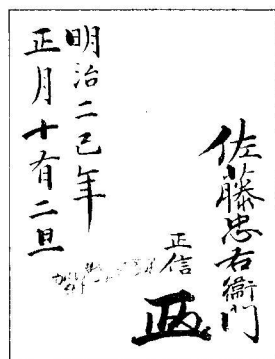 佐藤忠右衛門
正信
明治二己年
正月十有二旦